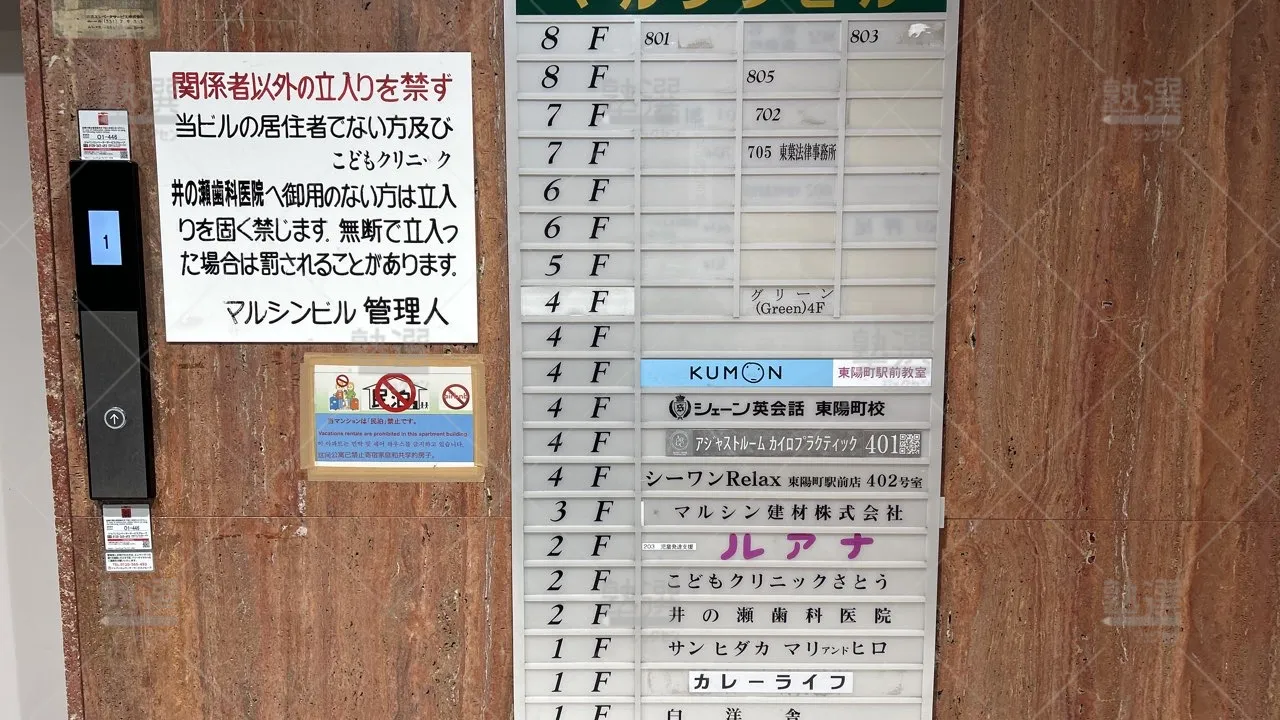 関係者以外の立入りを禁ず
当ビルの居住者でない方及び
こどもクリニック
井の瀬歯科医院へ御用のない方は立入
りを固く禁じます. 無断で立入っ
た場合は罰されることがあります.
マルシンビル 管理人
01-446
1
民泊
当マンションは「民泊」禁止です。
Vacations rentals are prohibited in this apartment building
01-446
マルシンビル
8 F 801 803
8 F 805
7 F 702
7 F 705 東葉法律事務所
6 F
6 F
5 F
4 F グリーン
(Green)4F
4 F
4 F KUMON 東陽町駅前教室
4 F シェーン英会話 東陽町校
4 F アジャストルーム カイロプラクティック 401
4 F シーワンRelax 東陽町駅前店 402号室
3 F マルシン建材株式会社
2 F 203 児童発達支援 ルアナ
2 F こどもクリニックさとう
2 F 井の瀬歯科医院
1 F サンヒダカ マリアンドヒロ
1 F カレーライフ
1 F 白洋舎
塾選